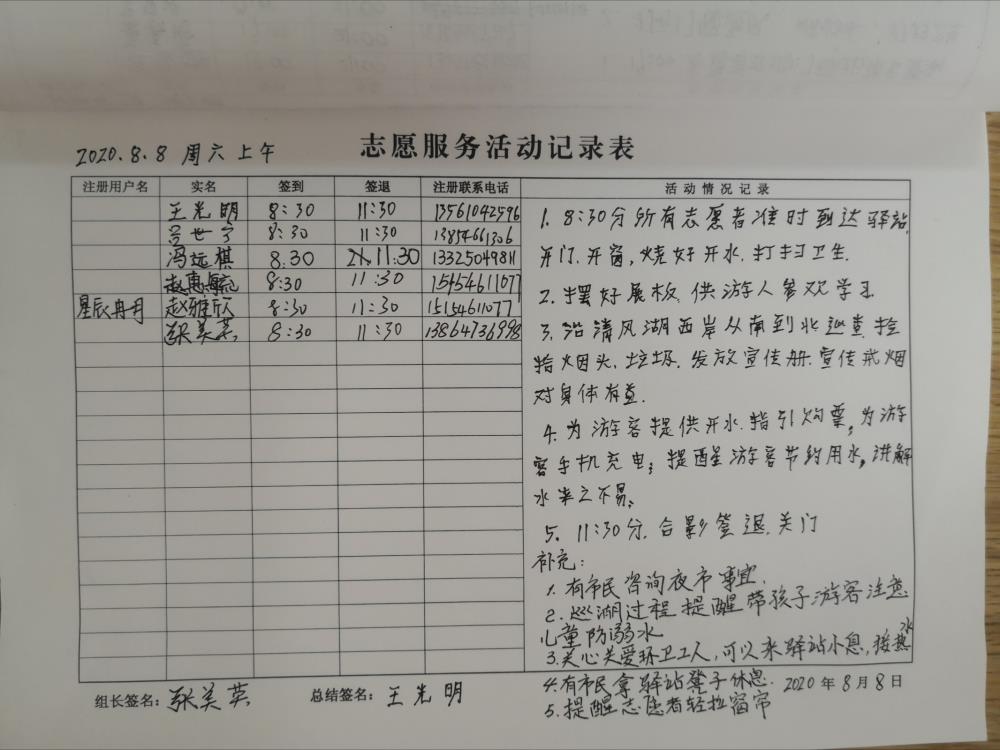 2020.8.8 周六上午
志愿服务活动记录表
注册用户名 实名 签到 签退 注册联系电话 活动情况记录
王光明 8:30 11:30 13561042596
吕世宁 8:30 11:30 13854661306
冯远棋 8.30 11.30 13325049811
赵惠 8:30 11:30 15454611077
星辰冉冉 赵雅欣 8:30 11:30 15154611077
张美英 8:30 11:30 13864736998
1. 8:30分所有志愿者准时到达驿站.
开门.开窗,烧好开水.打扫卫生.
2. 摆好展板.供游人参观学习
3. 沿清风湖西岸从南到北巡查.捡
拾烟头.垃圾.发放宣传册.宣传戒烟
对身体有益.
4. 为游客提供开水.指引购票,为游
客手机充电;提醒游客节约用水,讲解
水来之不易.
5. 11:30分.合影签退.关门
补充:
1.有市民咨询夜市事宜.
2.巡湖过程提醒带孩子游客注意
儿童防溺水
3.关心关爱环卫工人,可以来驿站小息,接热水
4.有市民拿驿站凳子休息.
5.提醒志愿者轻拉窗帘
2020年8月8日
组长签名:张美英 总结签名:王光明